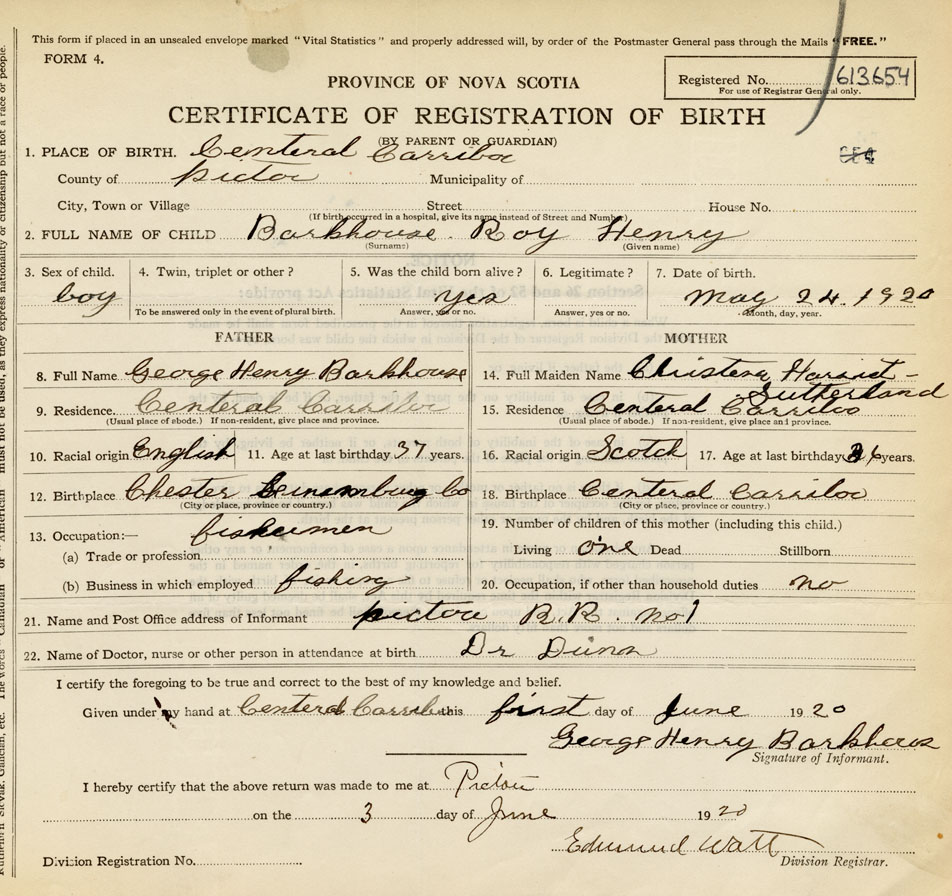 This form if placed in an unsealed envelope marked "Vital Statistics" and properly addressed will, by order of the Postmaster General pass through the Mails "FREE."
FORM 4.
Registered No. 613654
For use of Registrar General only.
PROVINCE OF NOVA SCOTIA
CERTIFICATE OF REGISTRATION OF BIRTH
(BY PARENT OR GUARDIAN)
1. PLACE OF BIRTH. Centeral Carriboc
County of pictoc Municipality of
City, Town or Village Street House No.
(If birth occurred in a hospital, give its name instead of Street and Number)
2. FULL NAME OF CHILD Barkhouse. Roy Henry
(Surname) (Given name)
3. Sex of child. 4. Twin, triplet or other? 5. Was the child born alive? 6. Legitimate? 7. Date of birth.
boy yes may 24. 1920
To be answered only in the event of plural birth. Answer, yes or no. Answer, yes or no. Month, day, year.
FATHER MOTHER
8. Full Name George Henry Barkhouse 14. Full Maiden Name Christena Harriet - Sutherland
9. Residence. Centeral Carriboc 15. Residence Centeral Carriboc
(Usual place of abode.) If non-resident, give place and province. (Usual place of abode.) If non-resident, give place and province.
10. Racial origin English 11. Age at last birthday 37 years. 16. Racial origin Scotch 17. Age at last birthday 36 years.
12. Birthplace Chester Co 18. Birthplace Centeral Carriboc
(City or place, province or country.) (City or place, province or country.)
13. Occupation:— fishermen 19. Number of children of this mother (including this child.)
(a) Trade or profession Living one Dead Stillborn
(b) Business in which employed fishing 20. Occupation, if other than household duties no
21. Name and Post Office address of Informant pictou R.R. no1
22. Name of Doctor, nurse or other person in attendance at birth Dr Dunn
I certify the foregoing to be true and correct to the best of my knowledge and belief.
Given under my hand at Centeral Carriboc this first day of June 1920
George Henry Barkhouse
Signature of Informant.
I hereby certify that the above return was made to me at Pictou
on the 3 day of June 1920
Edmund Watt
Division Registration No. Division Registrar.